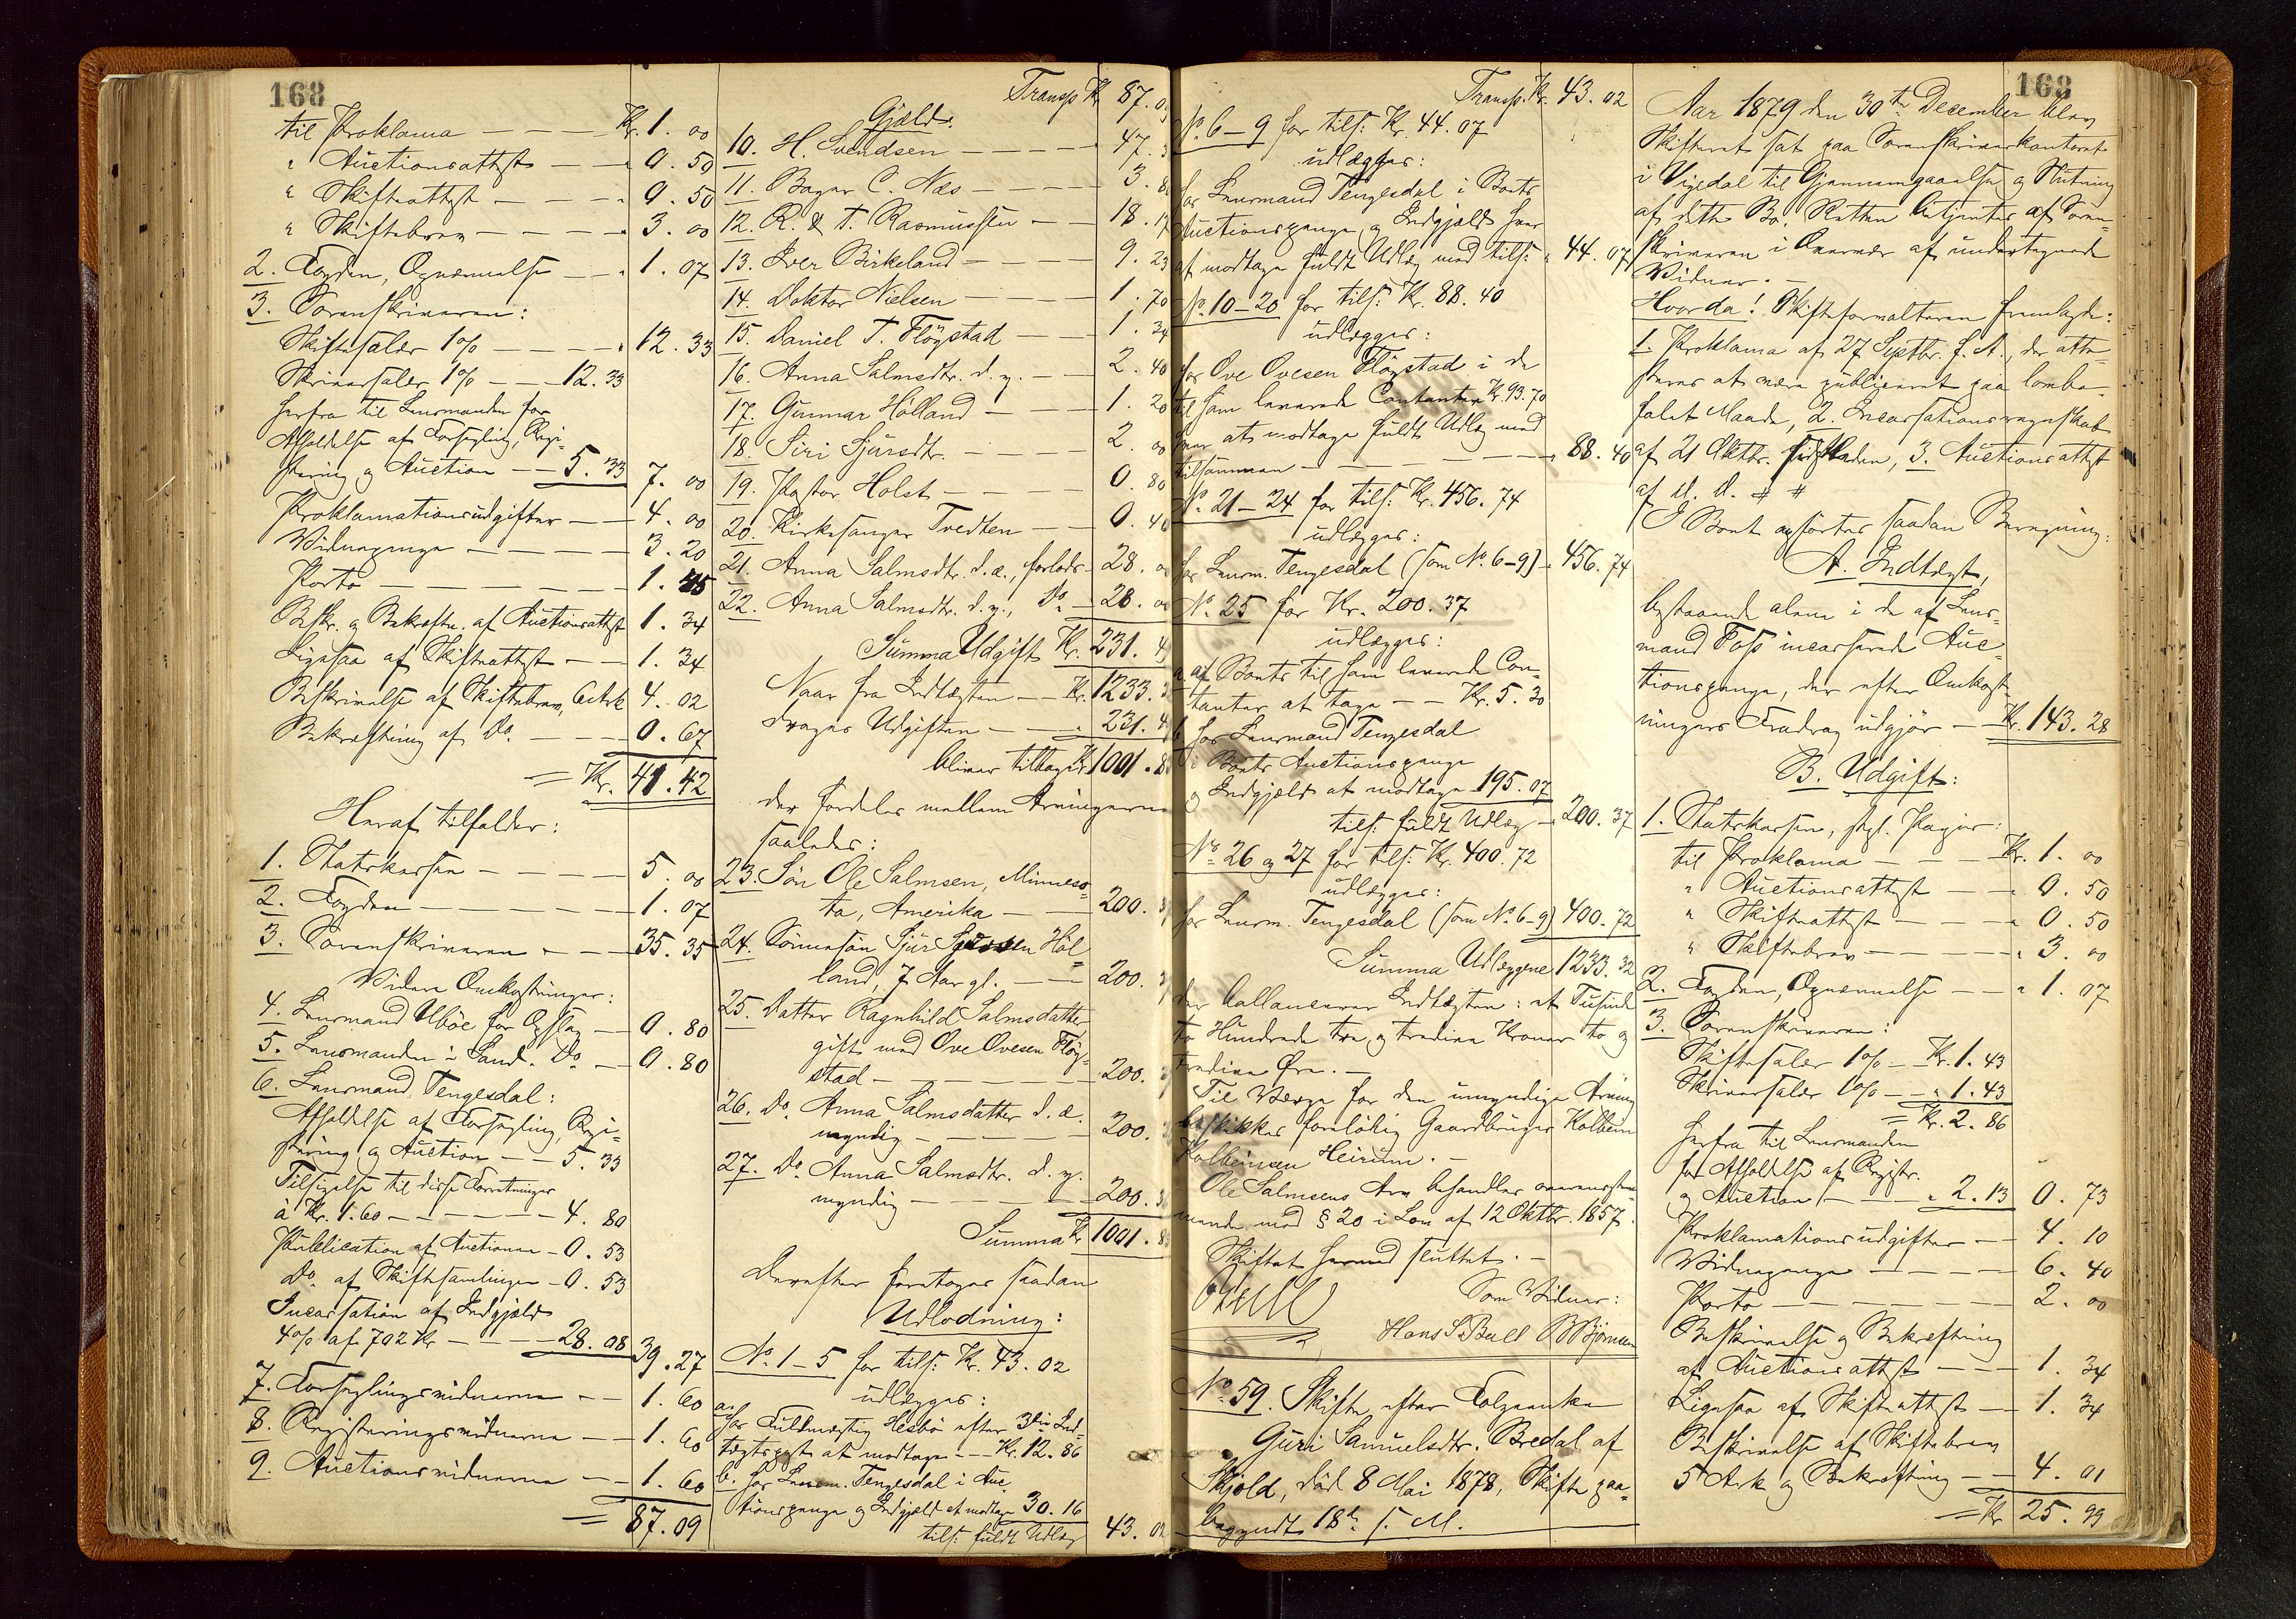 168
til Proklama — — — Kr. 1.00
" Auctionsattest — — " 0.50
" Skifteattest — — — " 0.50
" Skiftebrev — — — — " 3.00
2. Fogden, Opnævnelse — — " 1.07
3. Sorenskriveren:
Skiftesalær 1% — — — — " 12.33
Skriversalær 1% — — 12.33
herfra til Lensmanden for
Afholdelse af Forsegling, Regi-
strering og Auction — — 5.33 7.00
Proklamationsudgifter — — 4.00
Vidnepenge — — — — — 3.20
Porto — — — — — 1.45
Beskr. og Bekræftn. af Auctionsattest 1.34
Ligesaa af Skifteattest — — 1.34
Beskrivelse af Skiftebrev, 6 Ark 4.02
Bekræftning af Do. — — — 0.67
= Kr. 41.42
Heraf tilfalder:
1. Statskassen — — — — 5.00
2. Fogden — — — — — 1.07
3. Sorenskriveren — — — 35.35
Videre Omkostninger:
4. Lensmand Ubøe for Opslag — 0.80
5. Lensmanden i Sand. Do. — 0.80
6. Lensmand Tengesdal:
Afholdelse af Forsegling, Regi-
strering og Auction — — 5.33
Tilsigelse til disse Forretninger
à Kr. 1.60 — — — — — 4.80
Publication af Auctionen — 0.53
Do. af Skiftesamlingen — 0.53
Incassation af Indgjæld
4% af 702 Kr — — — 28.08 39.27
7. Forseglingsvidnerne — — 1.60
8. Registreringsvidnerne — — 1.60
9. Auctionsvidnerne — — 1.60
= 87.09
Transp. Kr. 87.09
Gjæld.
10. H. Svendsen — — — — 47.
11. Bager C. Næs — — — 3.
12. R. & T. Rasmussen — — 18.
13. Iver Birkeland — — — 9.23
14. Doktor Nielsen — — — 1.70
15. Daniel T. Fløgstad — — 1.34
16. Anna Salmsdtr. d. y. — — 2.40
17. Gunnar Hölland — — — 1.20
18. Siri Sjursdtr. — — — 2.00
19. Pastor Holst — — — 0.80
20. Kirkesanger Tvedten — — 0.40
21. Anna Salmsdtr. d. æ., forlods — 28.
22. Anna Salmsdtr. d. y., Do — 28.00
Summa Udgift Kr. 231.
Naar fra Indtægten — — Kr. 1233.
drages Udgiften — — — " 231.
bliver tilbage Kr. 1001.
der fordeles mellem Arvingerne
saaledes:
23. Søn Ole Salmsen, Minneso-
ta, Amerika — — 200.
24. Sønnesøn Sjur Sjursen Höl-
land, 7 Aar gl. — — 200.
25. Datter Ragnhild Salmsdatter,
gift med Ove Ovesen Fløg-
stad — — — — — 200.
26. Do. Anna Salmsdatter d. æ.
myndig — — — — 200.
27. Do. Anna Salmsdtr. d. y.
myndig — — — — 200.
Summa Kr. 1001.
Derefter foretoges saadan
Udlodning:
No. 1–5 for tils: Kr. 43.02
udlægges:
a. for Fuldmægtig Hesbö efter 3die Ind-
tægtspost at modtage — — Kr. 12.86
b. hos Lensm. Tengesdal i Auc-
tionspenge og Indgjæld at modtage 30.16
tils: fuldt Udlæg 43.02
Transp. Kr. 43.02
No. 6–9 for tils: Kr. 44.07
udlægges:
hos Lensmand Tengesdal i Boets
Auctionspenge og Indgjæld hver
at modtage fuldt Udlæg med tils: " 44.07
No. 10–20 for tils: Kr. 88.40
udlægges:
hos Ove Ovesen Fløgstad i de
til ham leverede Contanter Kr. 93.70
hver at modtage fuldt Udlæg med
tilsammen — — — — — " 88.40
No. 21–24 for tils: Kr. 456.74
udlægges:
hos Lensm. Tengesdal (som No. 6–9) — 456.74
No. 25 for Kr. 200.37
udlægges:
a. af Boets til ham leverede Con-
tanter at tage — — Kr. 5.30
b. hos Lensmand Tengesdal
i Boets Auctionspenge
og Indgjæld at modtage 195.07
tils: fuldt Udlæg — 200.37
No. 26 og 27 for tils: Kr. 400.72
udlægges:
hos Lensm. Tengesdal (som No. 6–9) 400.72
Summa Udlæggene 1233.32
der ballancerer Indtægten: et Tusinde
to Hundrede tre og tredive Kroner to og
tredive Øre. —
Til Værge for den umyndige Arving
beskikkes foreløbig Gaardbruger Kolbein
Kolbeinsen Heirum. —
Ole Salmsens Arv behandles overensstem-
mende med § 20 i Lov af 12 Oktbr. 1857.
Skiftet hermed sluttet. —
Som Vidner:
Hans S Bull B Bjørnsen
No. 59. Skifte efter Folgeenke
Guri Samuelsdtr. Bredal af
Skjold, død 8 Mai 1878, Skifte paa-
begyndt 18de s. M.
168
Aar 1879 den 30te December blev
Skifteret sat paa Sorenskriverkontoret
i Vigedal til Gjennemgaaelse og Slutning
af dette Bo. Retten betjentes af Soren-
skriveren i Overvær af undertegnede
Vidner. —
Hvorda! Skifteforvalteren fremlagde:
1. Proklama af 27 Septbr. f. A., der atte-
steres at være publiceret paa lovbe-
falet Maade, 2. Incassationsregnskab
af 21 Oktbr. sidstleden, 3. Auctionsattest
af d. D. # #
I Boet opførtes saadan Beregning:
A. Indtægt,
bestaaende alene i de af Lens-
mand Foss incasserede Auc-
tionspenge, der efter Omkost-
ningers Fradrag udgjør — Kr. 143.28
B. Udgift:
1. Statskassen, stpl. Papir:
til Proklama — — — Kr. 1.00
" Auctionsattest — — " 0.50
" Skifteattest — — — " 0.50
" Skiftebrev — — — — " 3.00
2. Fogden, Opnævnelse — — " 1.07
3. Sorenskriveren:
Skiftesalær 1% — Kr. 1.43
Skriversalær 1% — " 1.43
= Kr. 2.86
herfra til Lensmanden
for Afholdelse af Registr.
og Auction — — — " 2.13 0.73
Proklamationsudgifter — — 4.10
Vidnepenge — — — — 6.40
Porto — — — — — 2.00
Beskrivelse og Bekræftning
af Auctionsattest — — — 1.34
Ligesaa af Skifteattest — — 1.34
Beskrivelse af Skiftebrev
5 Ark og Bekræftning — — 4.01
= Kr. 25.99